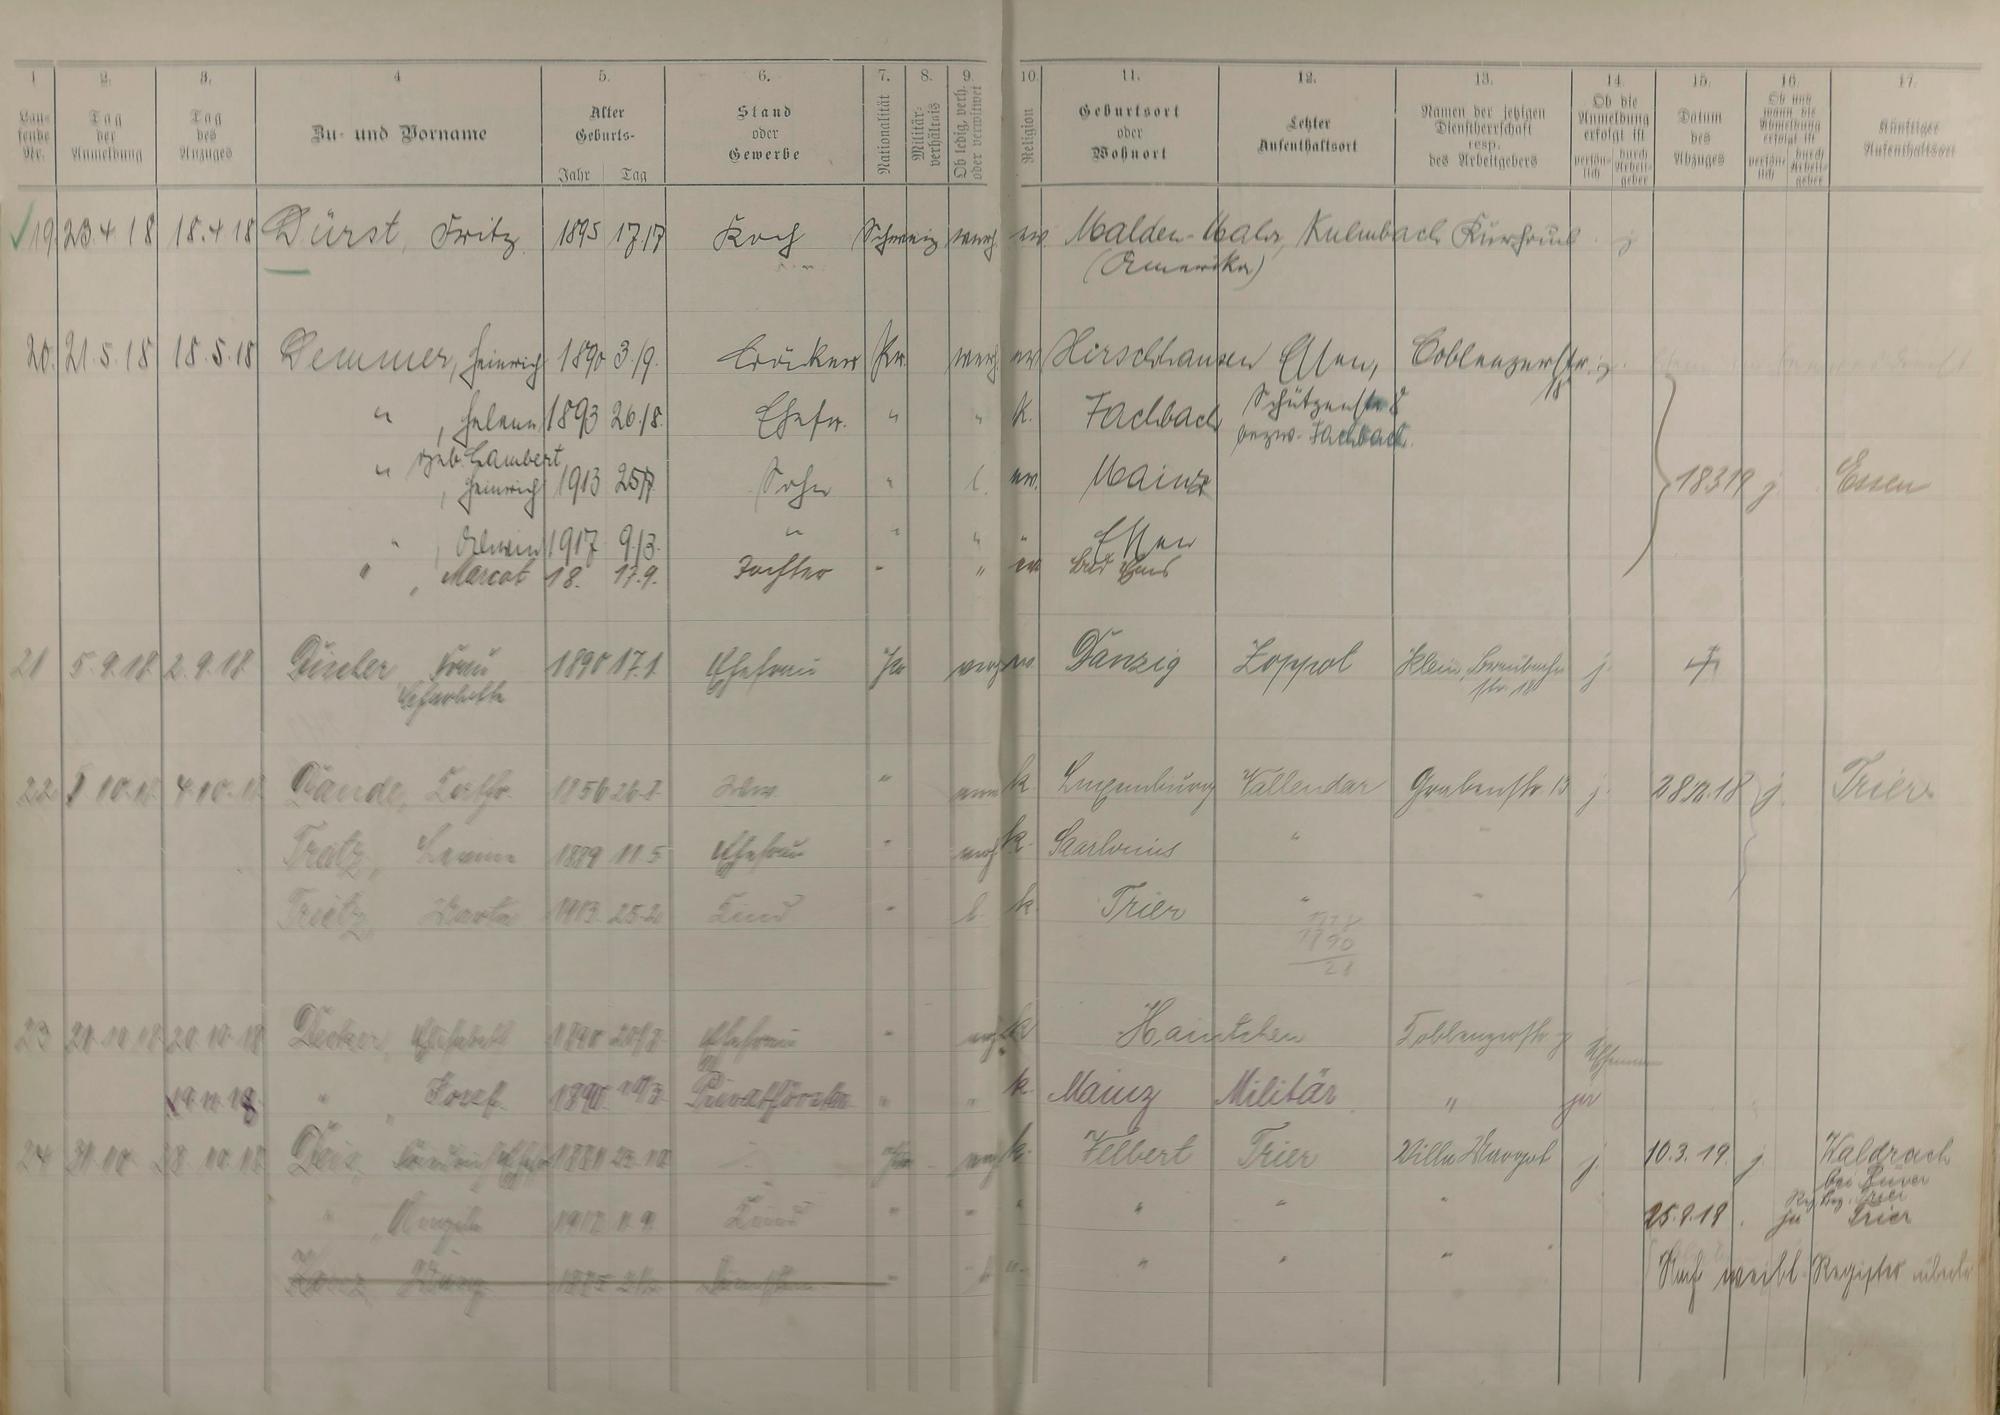 1 2. 3. 4 5. 6. 7. 8. 9. 10. 11. 12. 13. 14. 15. 16. 17.
Lau-
fende
Nr.
Tag
der
Anmeldung
Tag
des
Anzuges
Zu- und Vorname
Alter
Geburts-
Jahr Tag
Stand
oder
Gewerbe
Nationalität
Militär-
verhältnis
Ob ledig, verh.
oder verwitwet
Religion
Geburtsort
oder
Wohnort
Letzter
Aufenthaltsort
Namen der jetzigen
Dienstherrschaft
resp.
des Arbeitgebers
Ob die
Anmeldung
erfolgt ist
persön-
lich
durch
Arbeit-
geber
Datum
des
Abzuges
Ob und
wann die
Abmeldung
erfolgt ist
persön-
lich
durch
Arbeit-
geber
Künftiger
Aufenthaltsort
19. 23.4.18 18.4.18 Dürst, Fritz 1895 Koch Schweiz verh. ev. Malden- Kulmbach Kurhaus j
(Amerika)
20. 21.5.18 18.5.18 Demmer, Heinrich 1890 3./9. Pr. verh. ev. Hirschhausen Essen, Coblenzerstr. j.
18
" , Helene 1893 26./8. Ehefr. " " K. Fachbach Schützenstr 8
bezw. Fachbach.
geb. Lambert
" , Heinrich 1913 25/7 Sohn " l. ev. Mainz 18319 j. Essen
" , Erwin 1917 9./3. " " " " Essen
" , Margot 18. 17.9. Tochter " " ev Bad Ems
21 5.9.18 2.9.18 Frau 1890 17.1. Ehefrau Pr verh ev. Danzig Zoppot Klein, Braubacher
str. 18 j.
22 4.10.18 1856 26.8. " k. Luxemburg Vallendar Grabenstr 13 j. 28.12.18 j. Trier
1889 11.5 Ehefrau " verh k. Saarlouis " "
1913 25.2. Kind " l. k. Trier " "
1890
28
23 20.10.18 20.10.18 Decker, Elisabeth 1890 20/8. Ehefrau " verh. k. Haintchen Coblenzerstr j
19.11.18 " , Josef. 1890 Privatförster " " k. Mainz Militär " ja
24 31.10. 28.10.18 1881 Pr verh k. Velbert Trier Villa Margot j. 10.3.19. j. Waldrach
bei Ruwer
Reg Bez. Trier
" , Angela 1912 11.9. Kind " " " " " " 25.8.19. ja Trier
1885 " " " " Nach weibl. Register